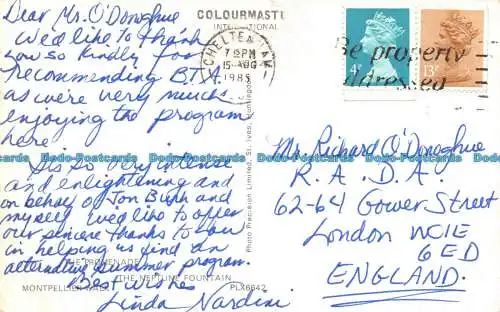 Dear Mr. O'Donoghue
We'd like to thank
you so kindly for
recommending B.T.A.
as we're very much
enjoying the program
here.
Its so very intense
and enlightening and
on behalf of Jon Bush and
myself we'd like to offer
our sincere thanks to you
in helping us find an
alternative summer program.
Best Wishes
Linda Nardini
COLOURMASTER
INTERNATIONAL
Photo Precision Limited, St. Ives, Huntingdon
THE PROMENADE
THE NEPTUNE FOUNTAIN
MONTPELLIER WALK
PLX6642
CHELTENHAM
15 AUG
1985
Be properly
addressed
4P
13P
Mr. Richard O'Donoghue
R.A.D.A.
62-64 Gower Street
London WC1E
6ED
ENGLAND.
Dodo-Postcards Dodo-Postcards Dodo-Postcards Dodo-Postcards Dodo-Postcards Dodo-Postcards